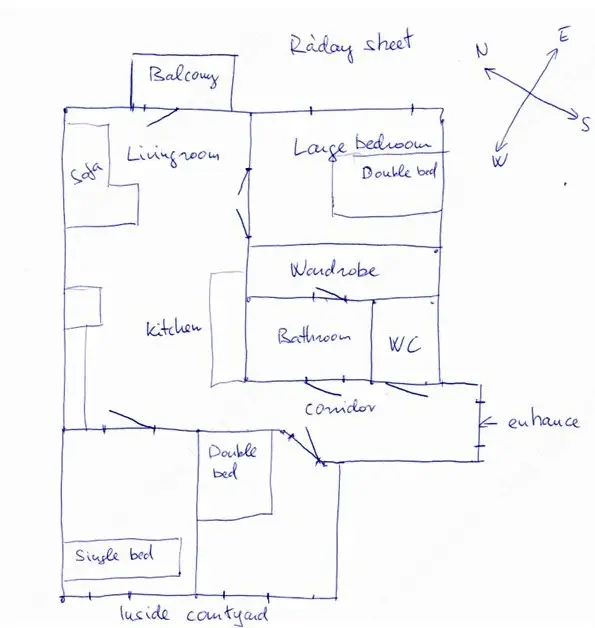 Ràday sheet
N
E
S
W
Balcony
Livingroom
Large bedroom
Sofa
Double bed
Wardrobe
Kitchen
Bathroom
WC
Corridor
← entrance
Double
bed
Single bed
Inside courtyard